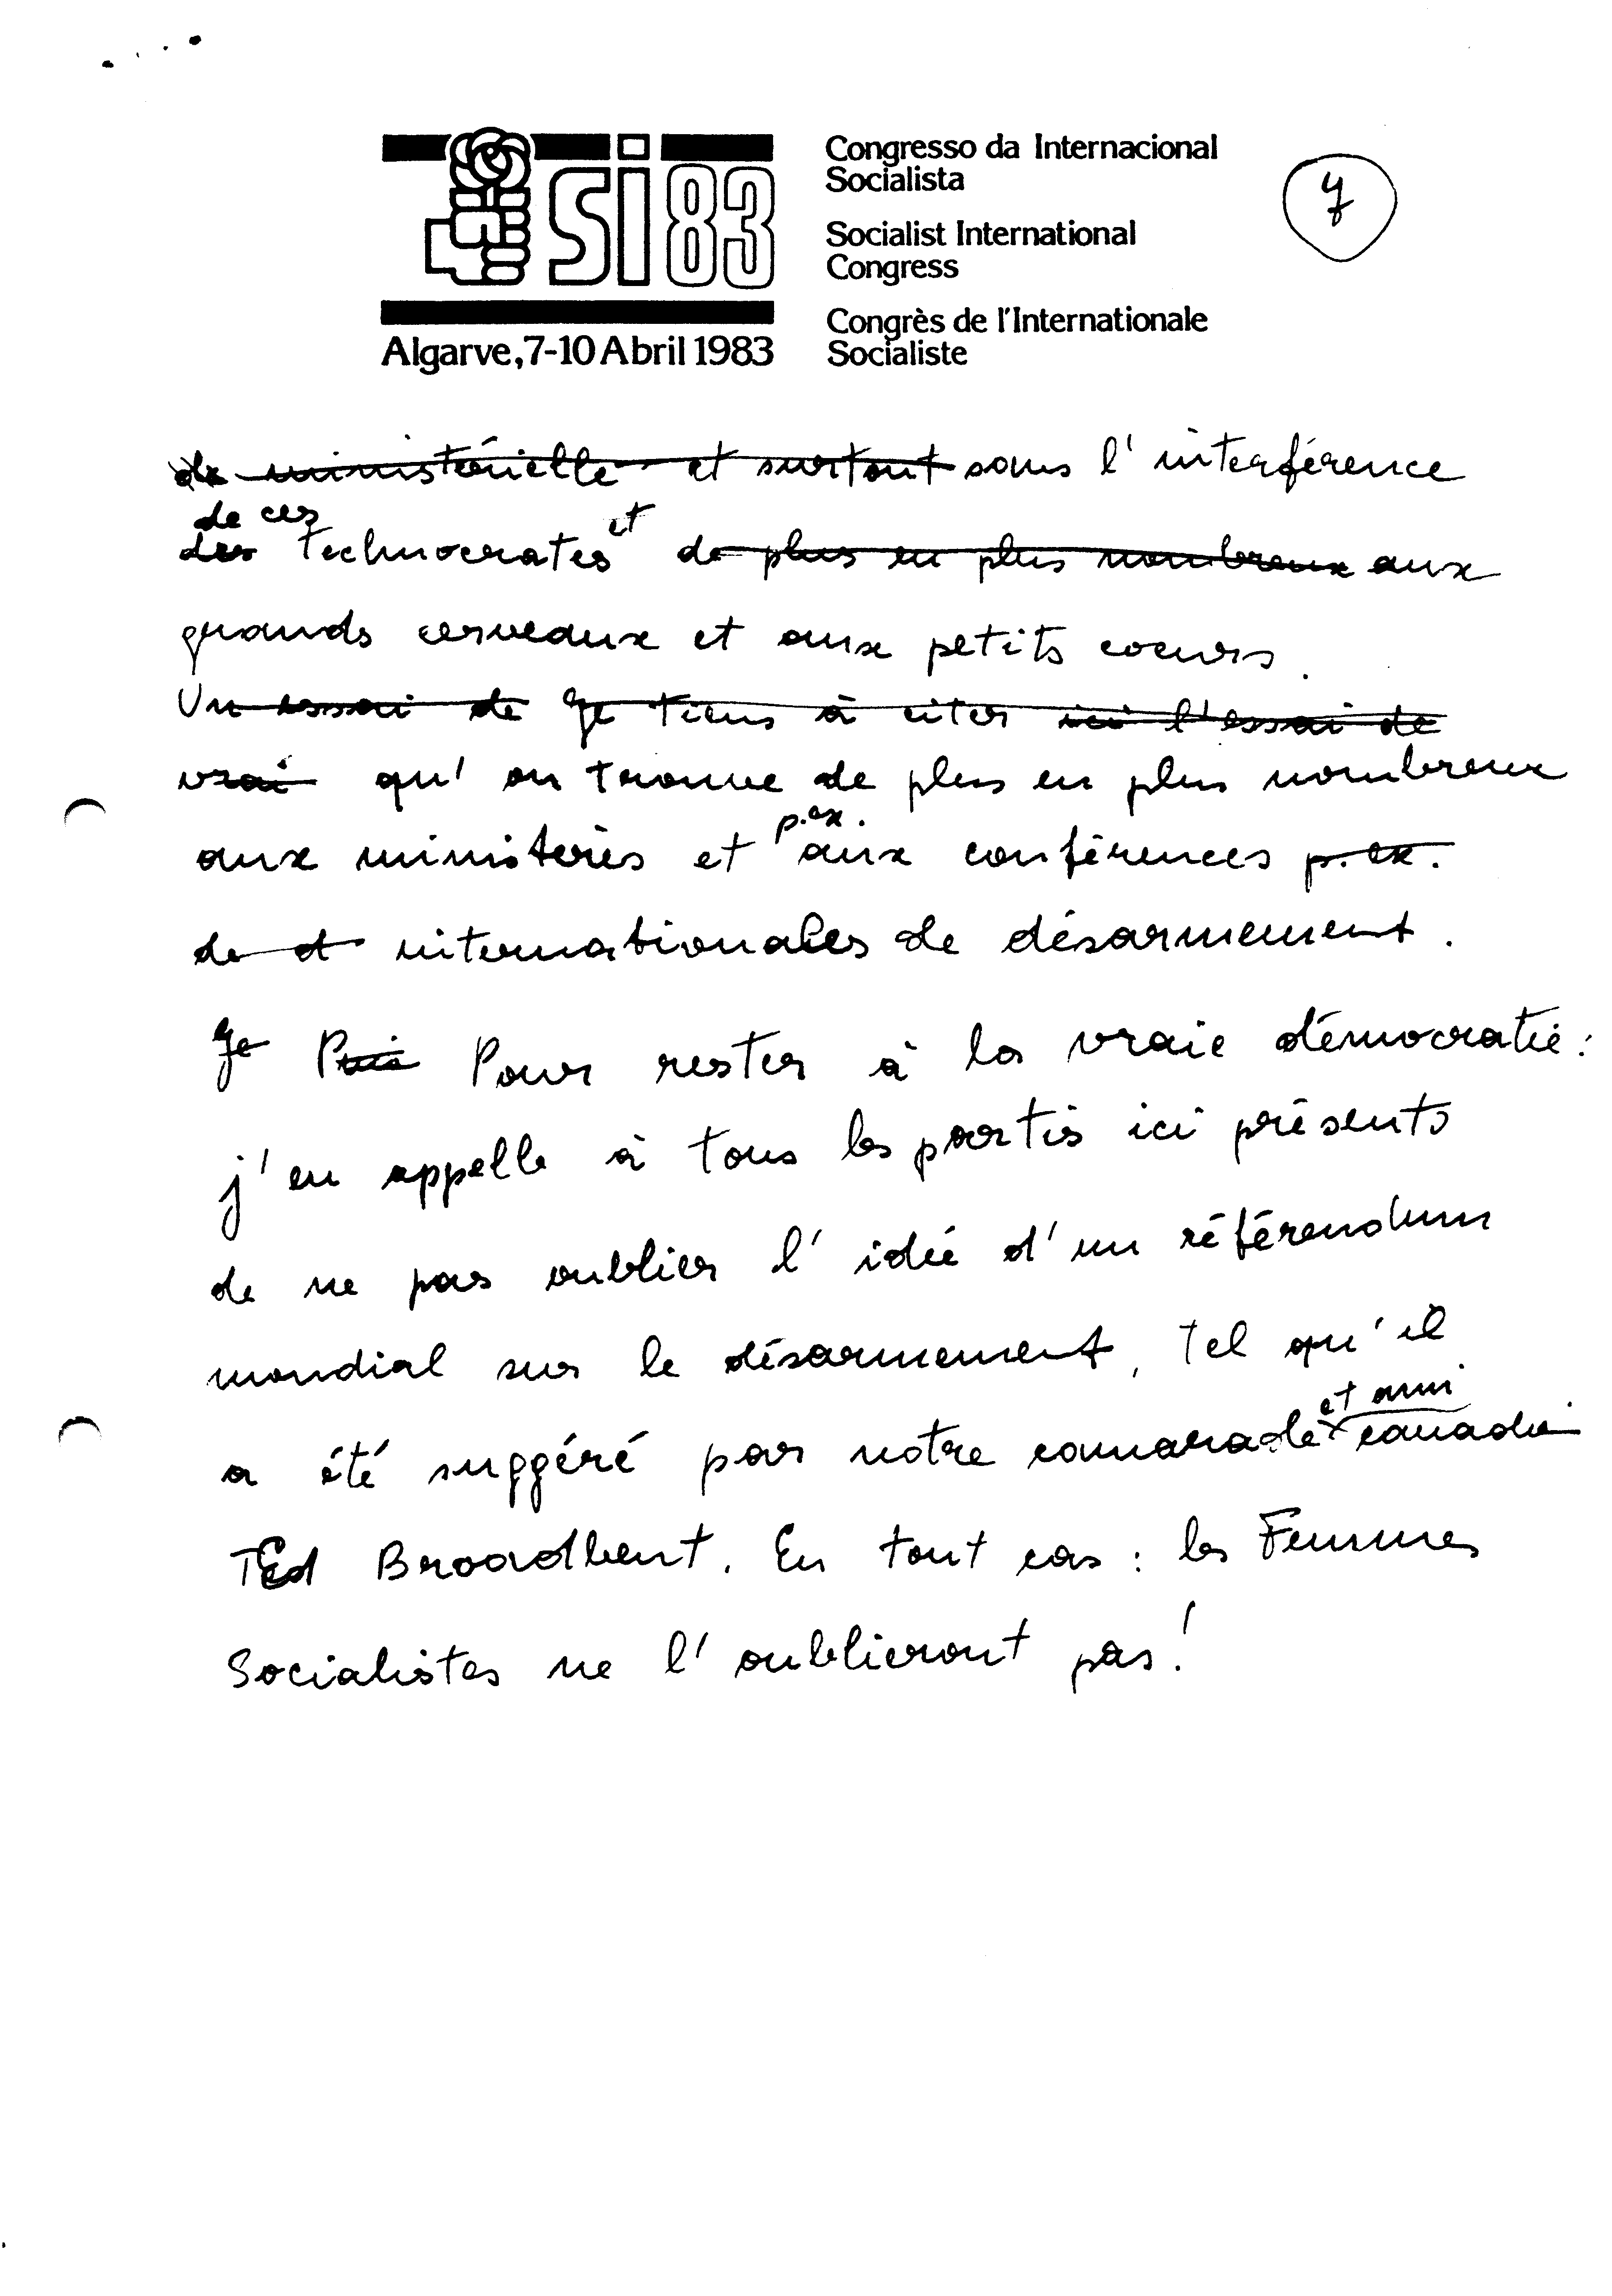 SI 83
Algarve, 7-10 Abril 1983
Congresso da Internacional
Socialista
Socialist International
Congress
Congrès de l'Internationale
Socialiste
7
de ministérielle et surtout sans l'interférence
de ces et
des technocrates de plus en plus nombreux aux
grands cerveaux et aux petits coeurs.
Un essai de Je tiens à citer ici l'essai de
vrai qu'on trouve de plus en plus nombreux
p.ex.
aux ministères et aux conférences p.ex.
de d internationales de désarmement.
Je Puis Pour rester à la vraie démocratie:
j'en appelle à tous les partis ici présents
de ne pas oublier l'idée d'un référendum
mondial sur le désarmement, tel qu'il
et ami
a été suggéré par notre camarade canadien
TEd Broadbent. En tout cas: les Femmes
Socialistes ne l'oublieront pas!